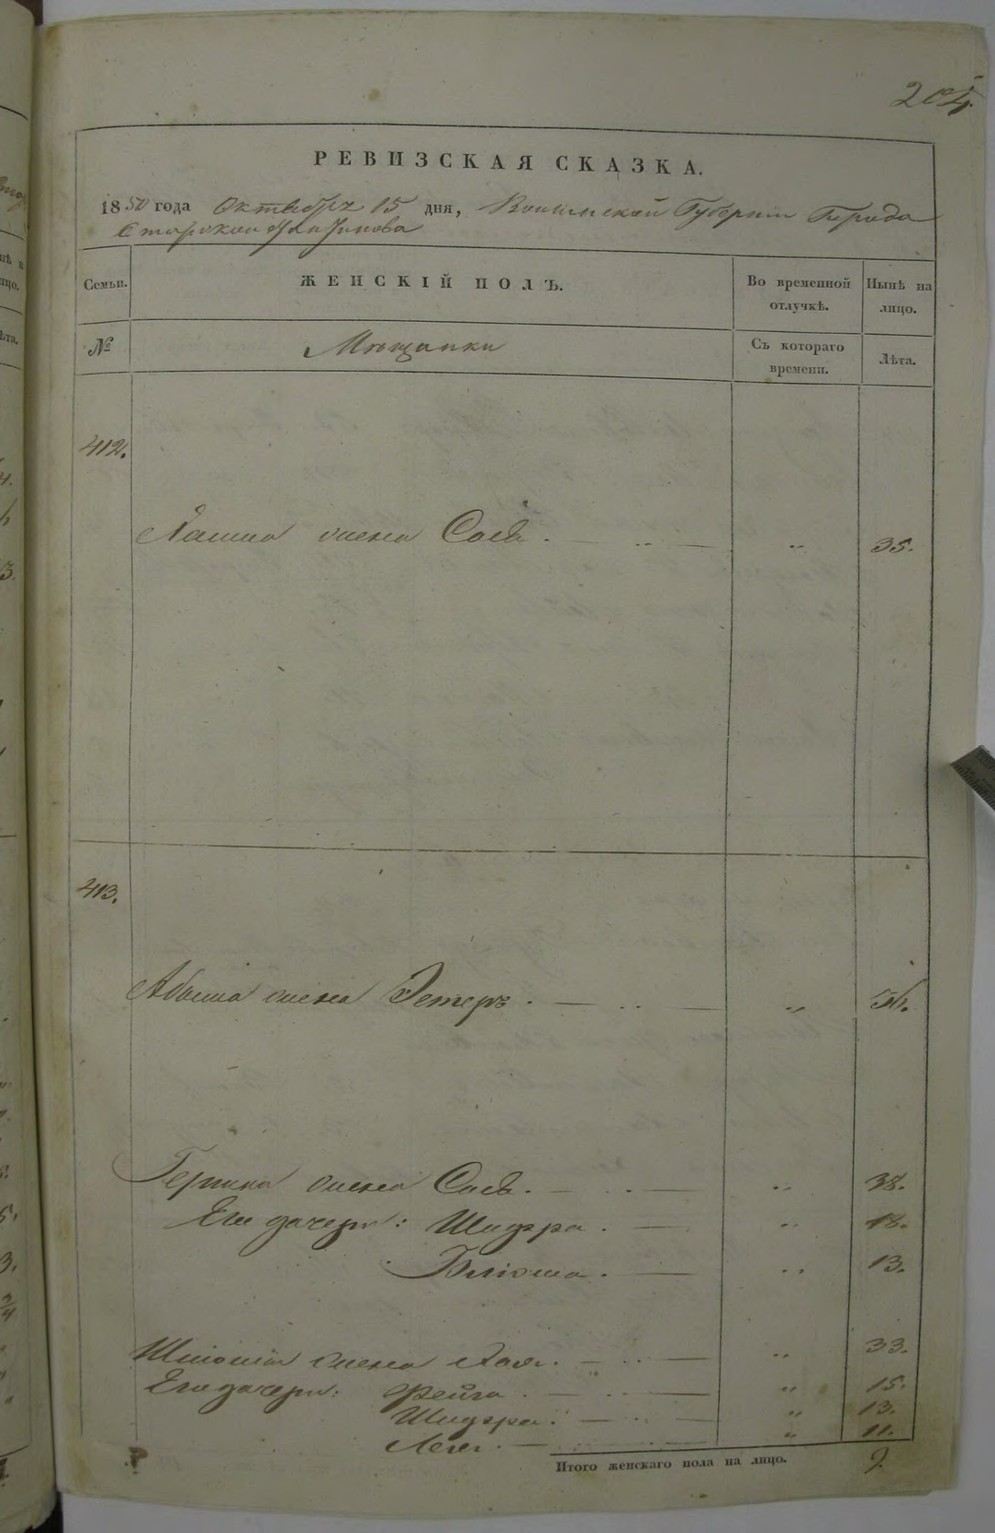 204.
РЕВИЗСКАЯ СКАЗКА.
1850 года Октября 15 дня, Волынской Губернии Города
Староконстантинова
Семьи. ЖЕНСКІЙ ПОЛЪ. Во временной отлучкѣ. Нынѣ на лицо.
№ Мѣщанки Съ котораго времени. Лѣта.
412.
жена Сося. — .. — „ 35.
413.
Абрама жена Эстеръ. — .. — „ 56.
Гершка жена Сося. — .. — „ 38.
Его дочери: Шндра. — „ 18.
Блюма. — „ 13.
Шлиомы жена Хая. — .. — „ 33.
Его дочери: Фейга. — .. — „ 15.
Шндра. — .. — „ 13.
Лея. — .. — „ 11.
Итого женскаго пола на лицо. 9.